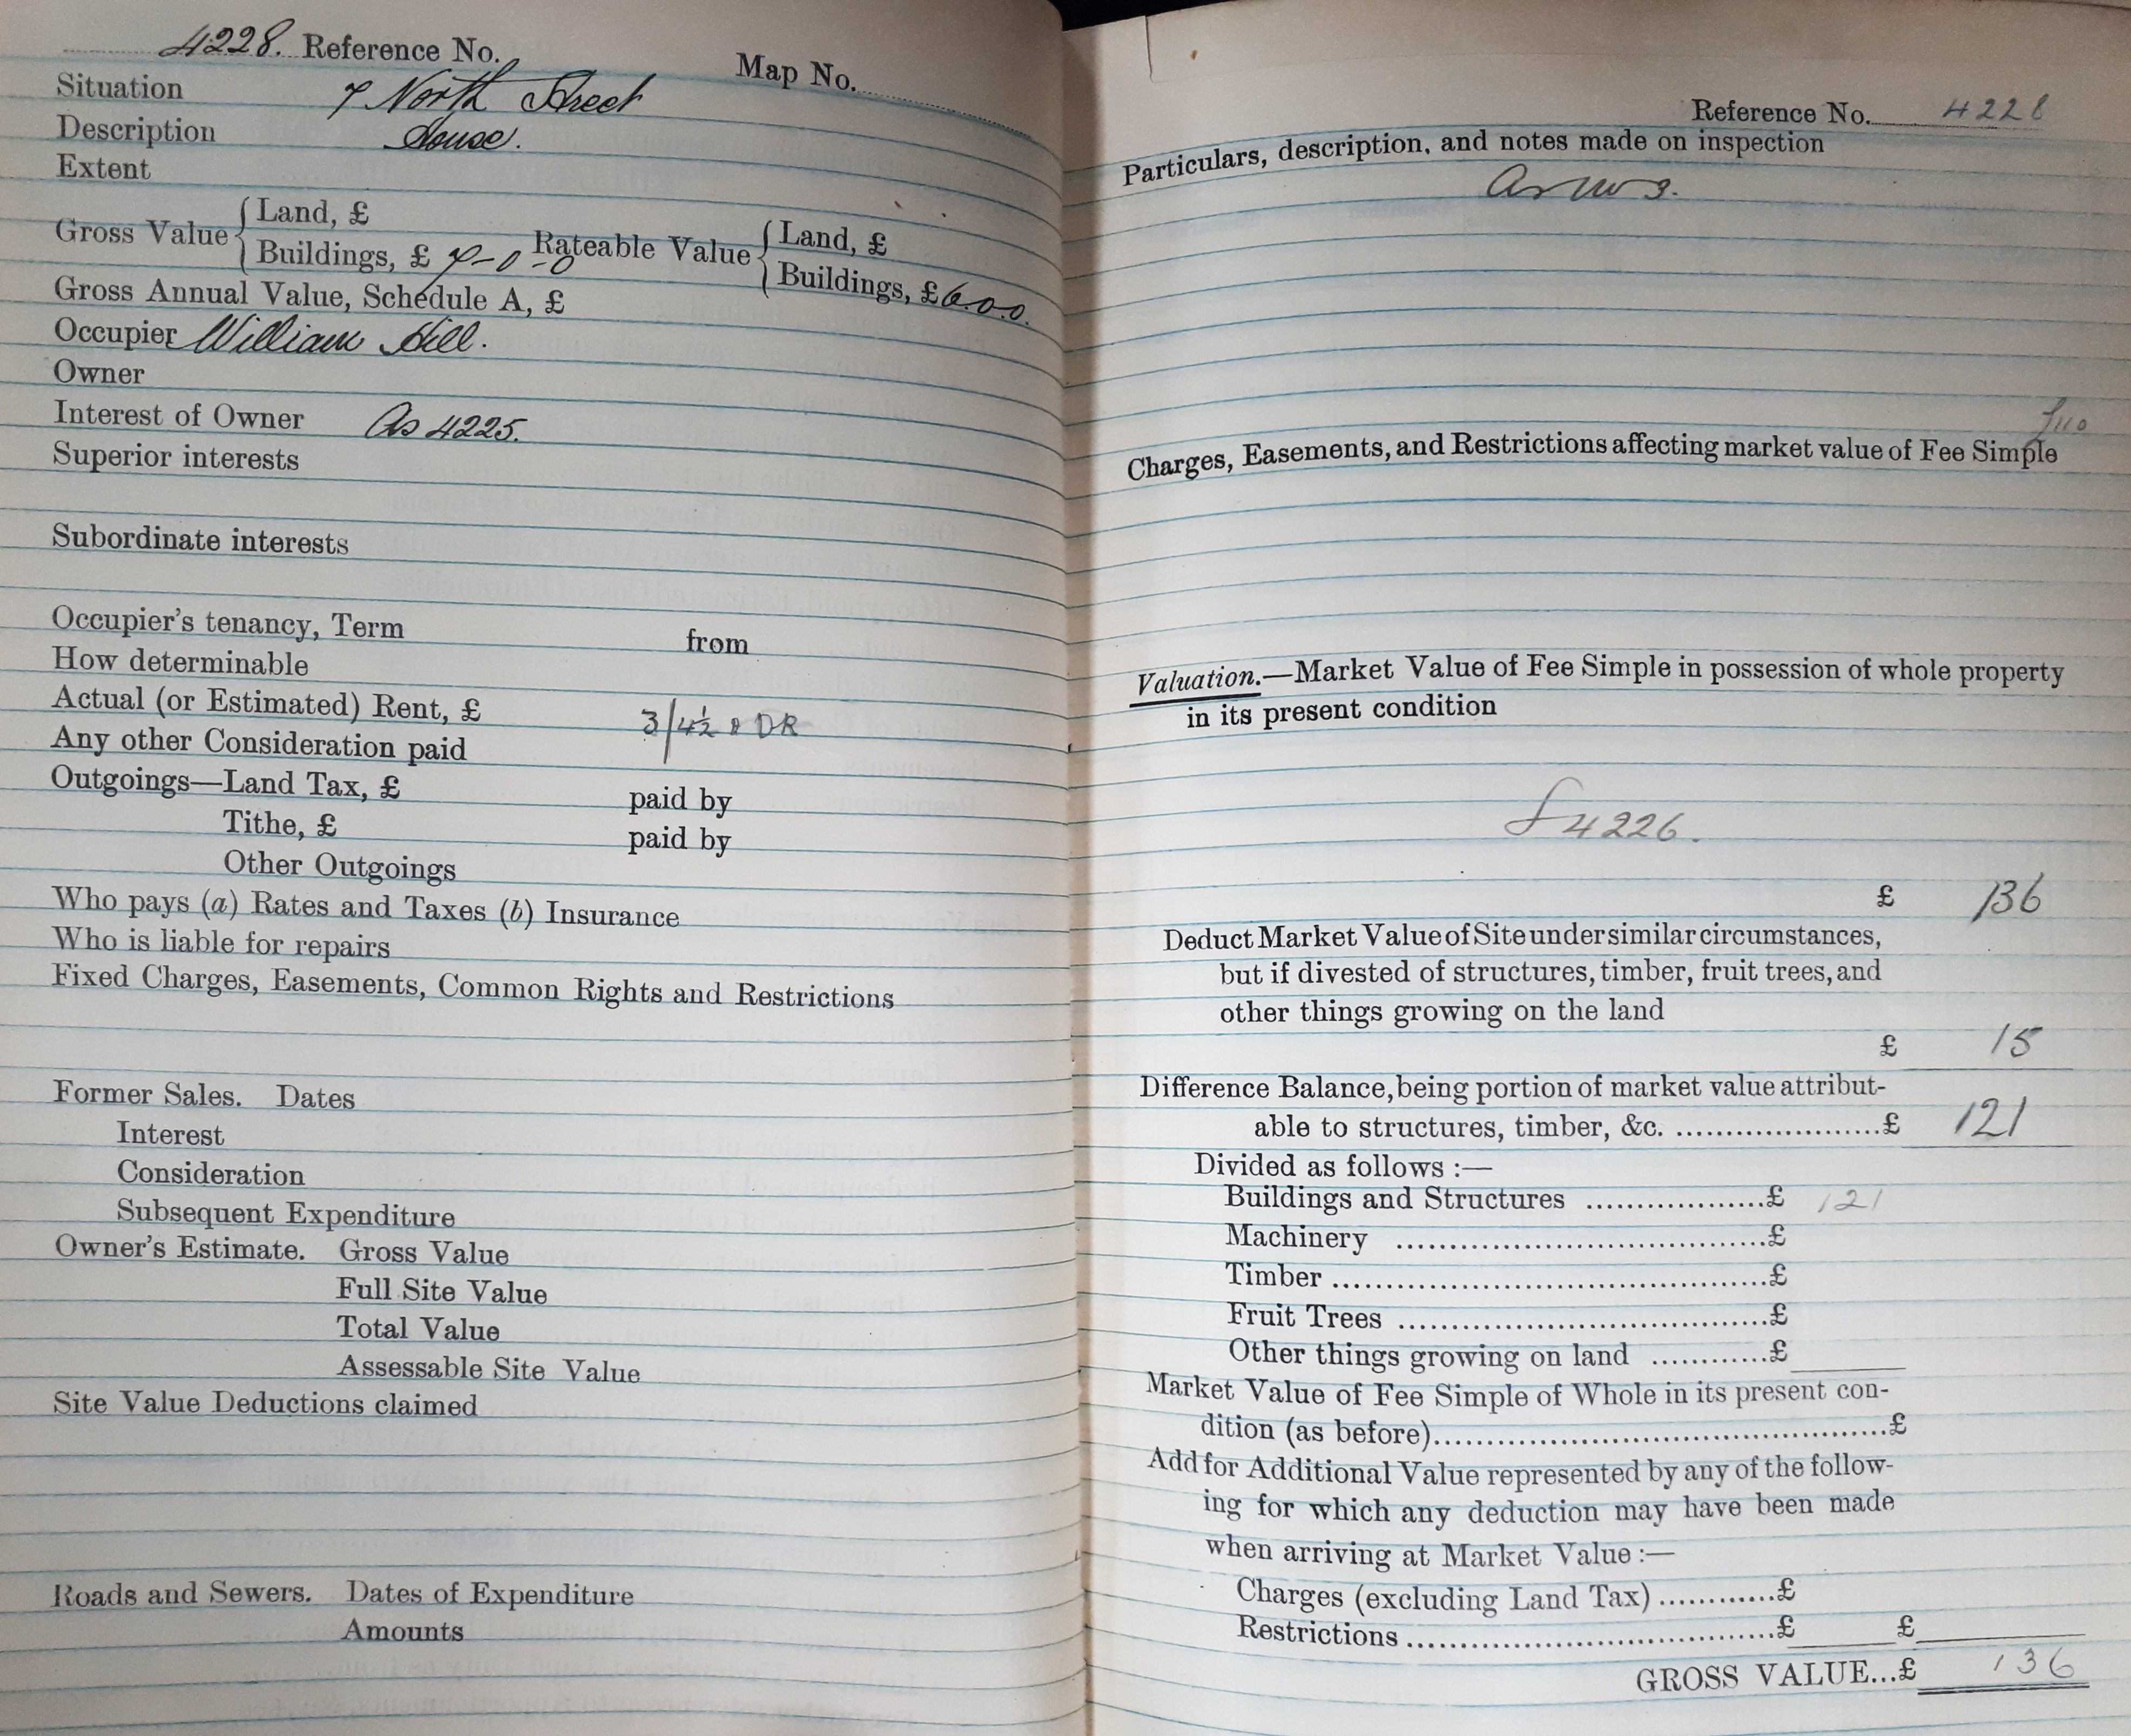 4228. Reference No. Map No.
Situation 7 North Street
Description House.
Extent
Gross Value { Land, £ Rateable Value { Land, £
Buildings, £ 7-0-0 Buildings, £ 6.0.0.
Gross Annual Value, Schedule A, £
Occupier William Hill.
Owner
Interest of Owner As 4225.
Superior interests
Subordinate interests
Occupier's tenancy, Term from
How determinable
Actual (or Estimated) Rent, £ 3/4½ DR
Any other Consideration paid
Outgoings—Land Tax, £ paid by
Tithe, £ paid by
Other Outgoings
Who pays (a) Rates and Taxes (b) Insurance
Who is liable for repairs
Fixed Charges, Easements, Common Rights and Restrictions
Former Sales. Dates
Interest
Consideration
Subsequent Expenditure
Owner's Estimate. Gross Value
Full Site Value
Total Value
Assessable Site Value
Site Value Deductions claimed
Roads and Sewers. Dates of Expenditure
Amounts
Reference No. 4228
Particulars, description, and notes made on inspection
As
Charges, Easements, and Restrictions affecting market value of Fee Simple
Valuation.—Market Value of Fee Simple in possession of whole property
in its present condition
£4226.
£ 136
Deduct Market Value of Site under similar circumstances,
but if divested of structures, timber, fruit trees, and
other things growing on the land
£ 15
Difference Balance, being portion of market value attribut-
able to structures, timber, &c. ......................£ 121
Divided as follows :—
Buildings and Structures ..................£ 121
Machinery ......................................£
Timber ............................................£
Fruit Trees .....................................£
Other things growing on land ............£
Market Value of Fee Simple of Whole in its present con-
dition (as before)................................................£
Add for Additional Value represented by any of the follow-
ing for which any deduction may have been made
when arriving at Market Value :—
Charges (excluding Land Tax) ............£
Restrictions ......................................£ £
GROSS VALUE...£ 136